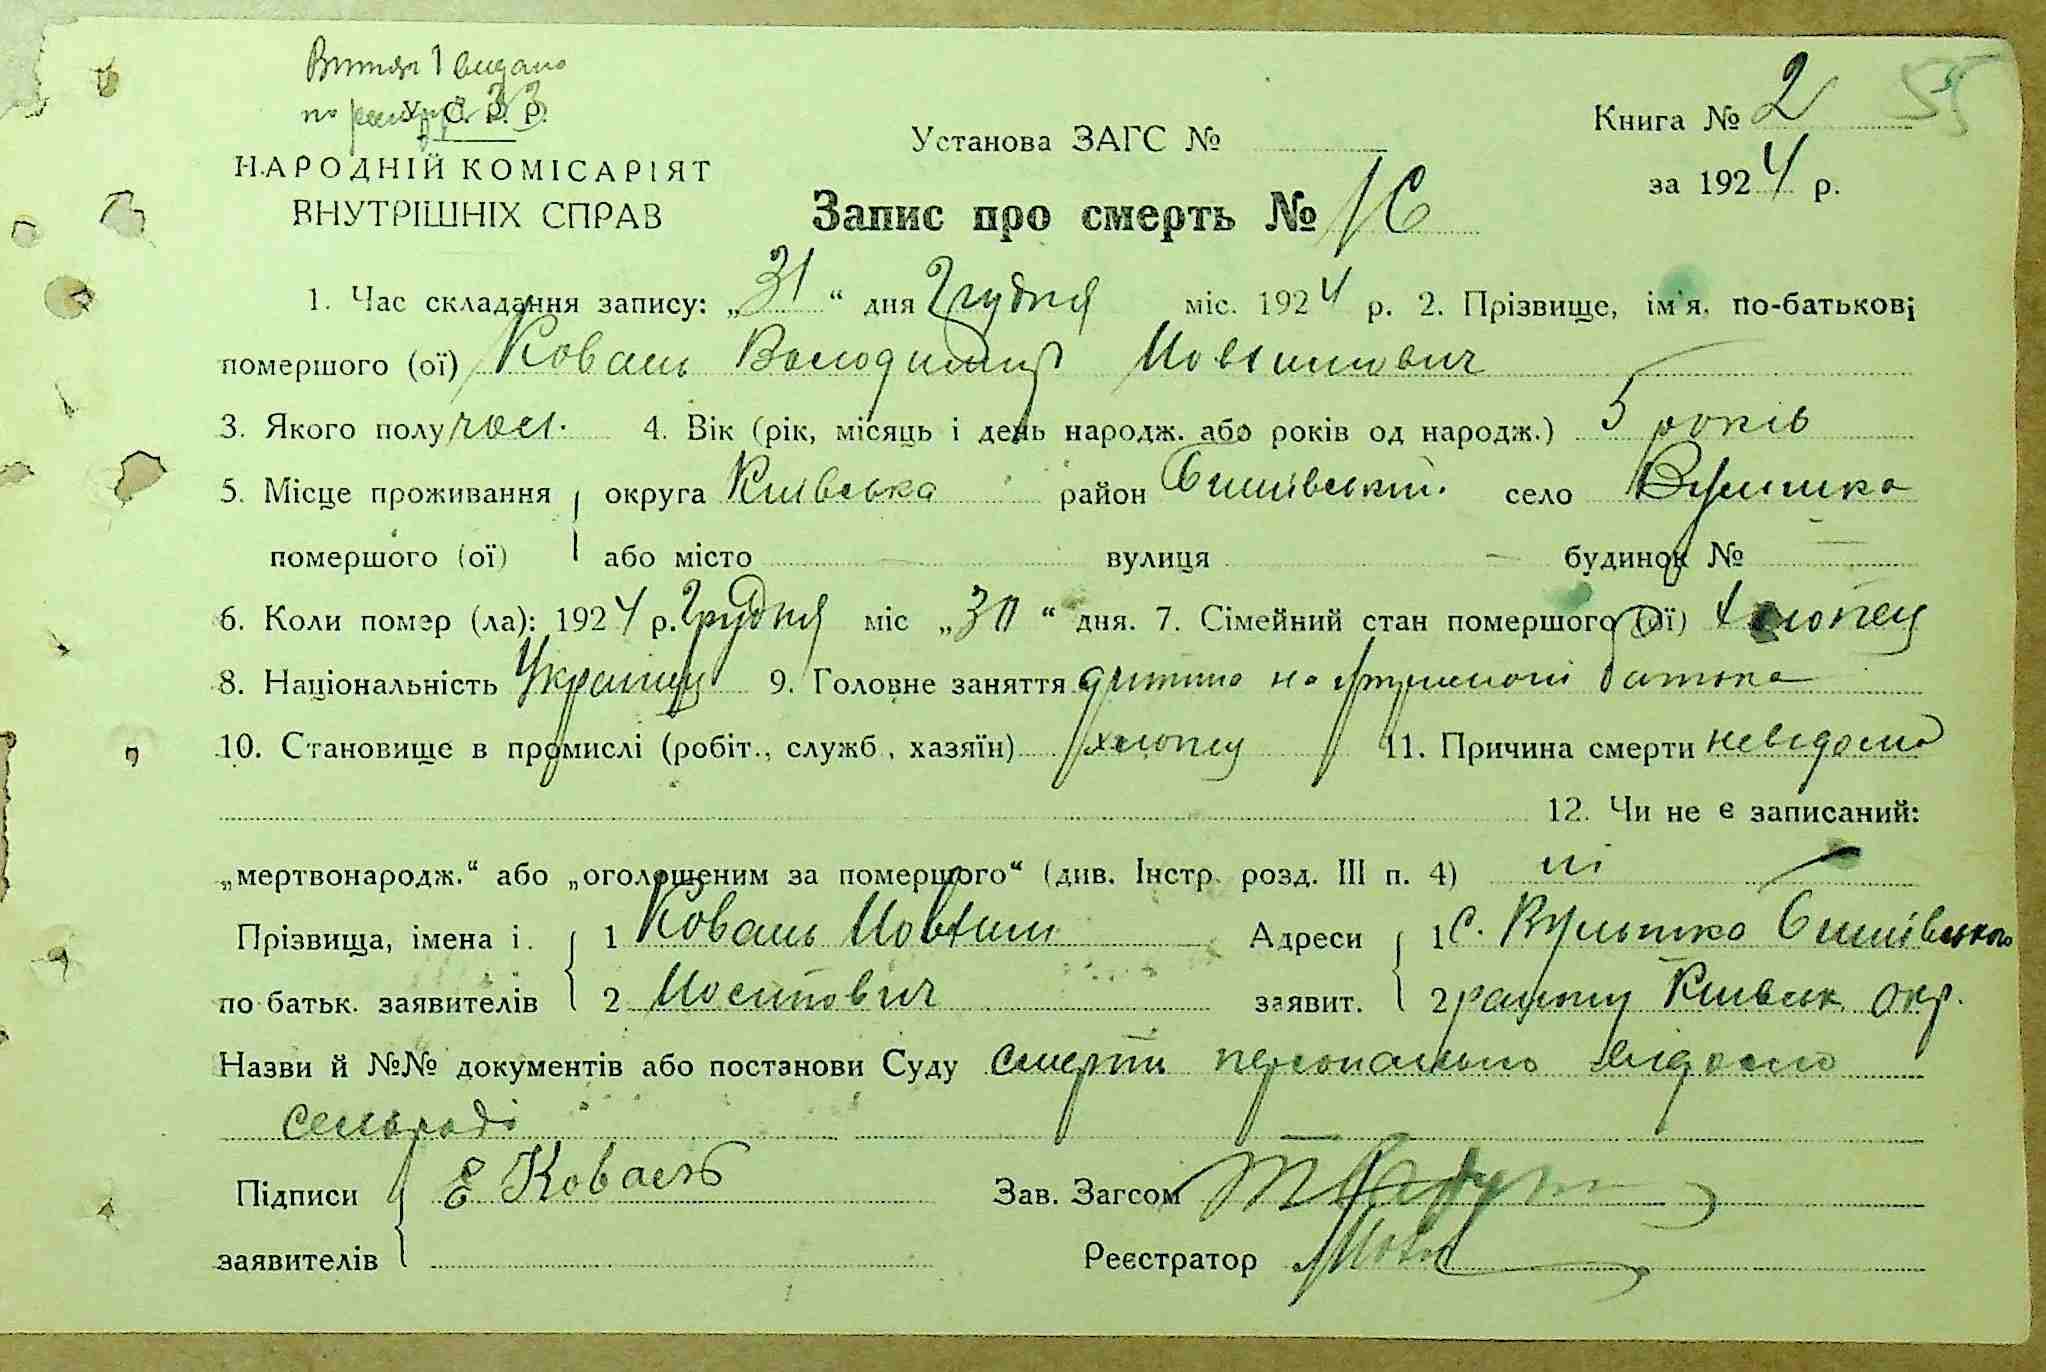 Витяг 1 видано
по реєстру 33
У. С. Р. Р.
НАРОДНІЙ КОМІСАРІЯТ
ВНУТРІШНІХ СПРАВ
Установа ЗАГС №
Запис про смерть № 16
Книга № 2 55
за 1924 р.
1. Час складання запису: „31“ дня Грудня міс. 1924 р. 2. Прізвище, ім'я, по-батькові
помершого (ої) Коваль Володимир Йовтимович
3. Якого полу чол. 4. Вік (рік, місяць і день народж. або років од народж.) 5 років
5. Місце проживання округа Київська район Бишівський село
помершого (ої) або місто вулиця будинок №
6. Коли помер (ла): 1924 р. Грудня міс „30“ дня. 7. Сімейний стан помершого (ої) хлопец
8. Національність Украинц 9. Головне заняття дитина на батька
10. Становище в промислі (робіт., служб., хазяїн) хлопец 11. Причина смерти невідома
12. Чи не є записаний:
„мертвонародж.“ або „оголошеним за помершого“ (див. Інстр. розд. III п. 4) ні
Прізвища, імена і 1 Коваль Йовтим Адреси 1 с. Бишівського
по батьк. заявителів 2 Йосипович заявит. 2 району Київськ. окр.
Назви й №№ документів або постанови Суду смерть персонально відома
сельраді
Підписи Е Коваль Зав. Загсом
заявителів Реєстратор